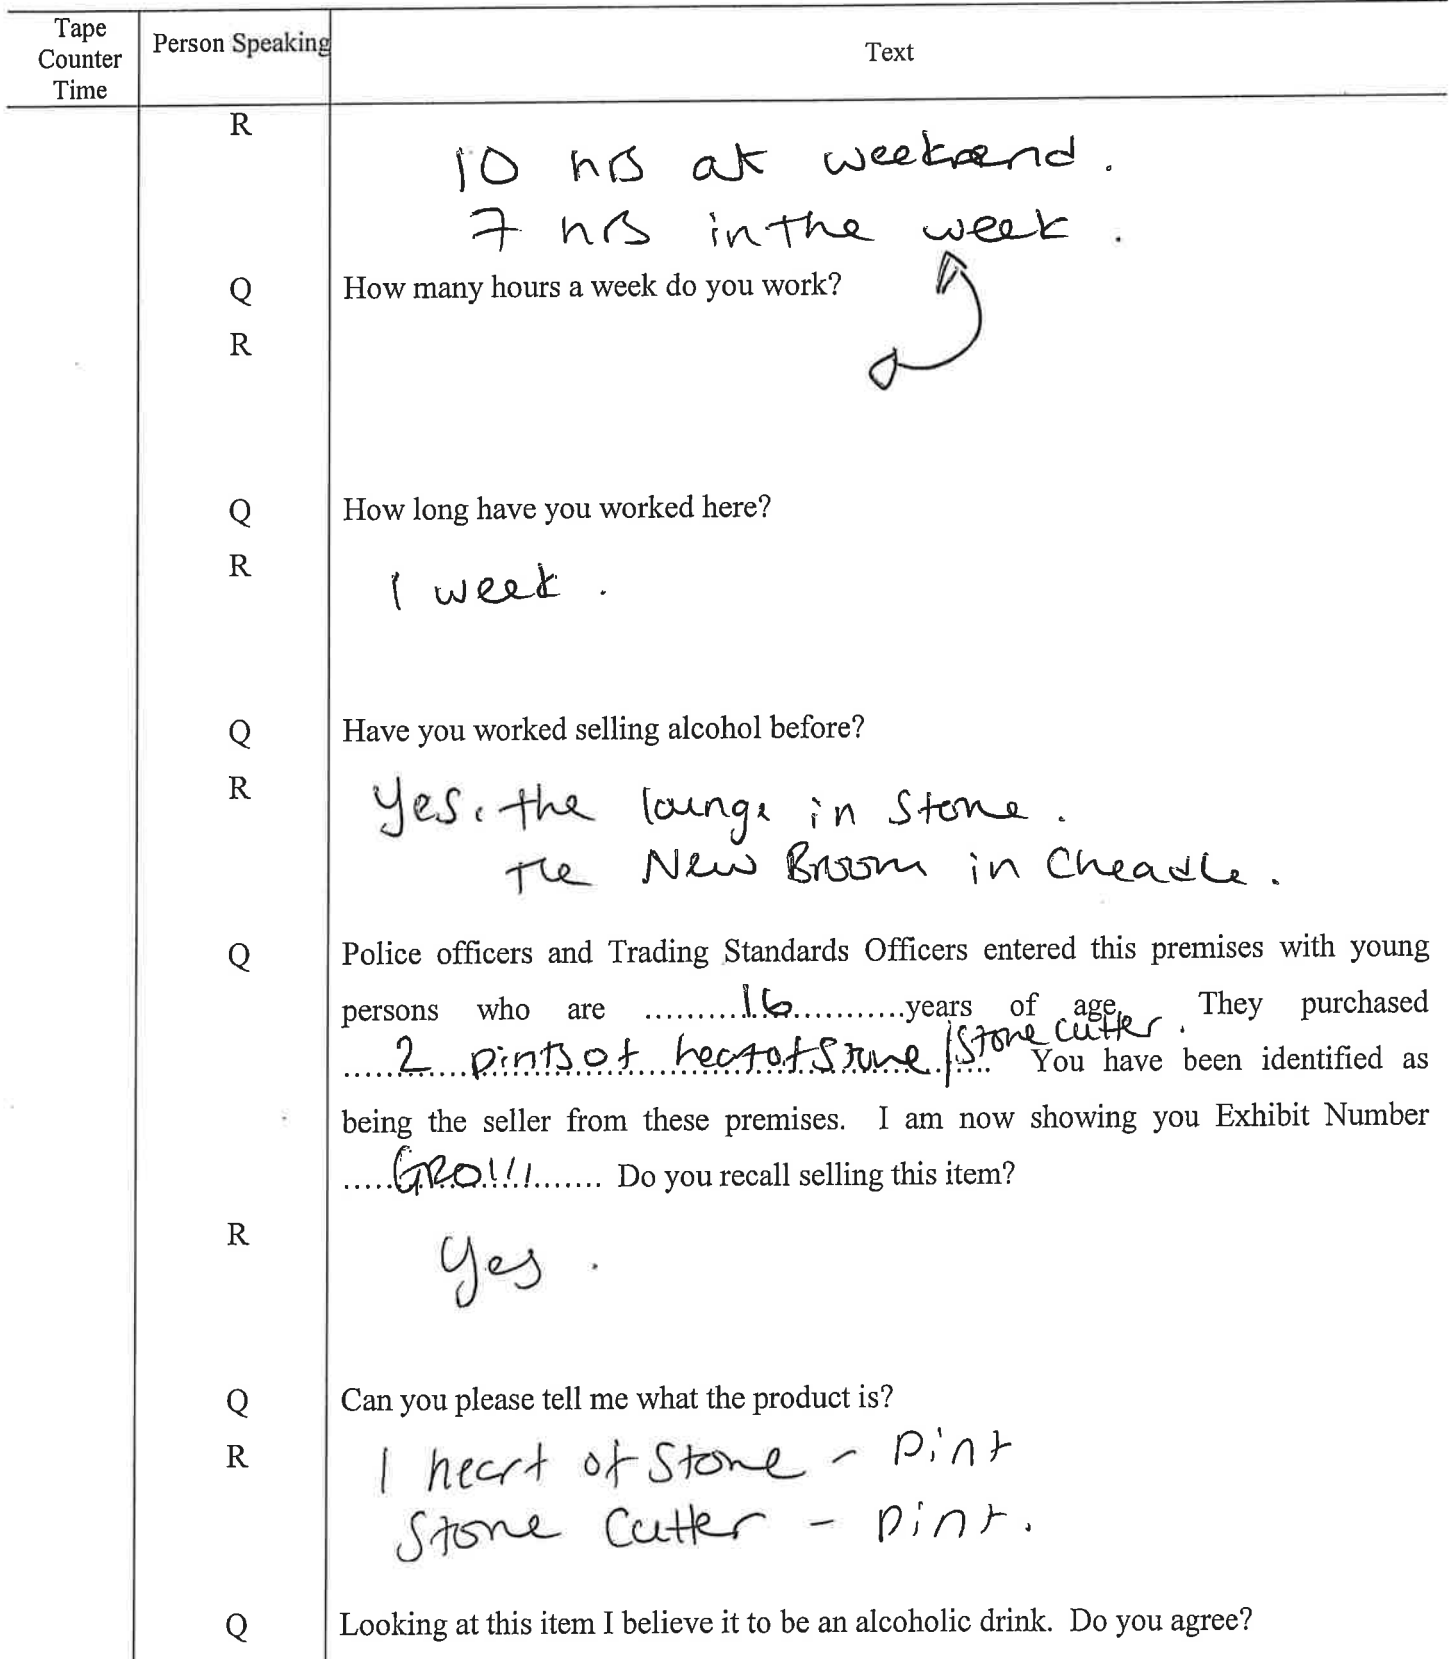 Tape
Counter
Time
Person Speaking
Text
R
10 hrs at weekend.
7 hrs in the week.
Q How many hours a week do you work?
R
Q How long have you worked here?
R
1 week.
Q Have you worked selling alcohol before?
R
Yes. the lounge in Stone.
The New Broom in Cheadle.
Q Police officers and Trading Standards Officers entered this premises with young
persons who are ..........16...........years of age. They purchased
.....2 pints of heart of Stone/Stone Cutter. You have been identified as
being the seller from these premises. I am now showing you Exhibit Number
.....GRO/1/1....... Do you recall selling this item?
R
Yes.
Q Can you please tell me what the product is?
R 1 heart of Stone - pint
Stone Cutter - pint.
Q Looking at this item I believe it to be an alcoholic drink. Do you agree?